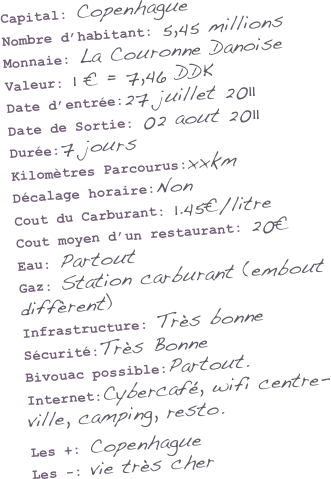 Capital: Copenhague
Nombre d'habitant: 5,45 millions
Monnaie: La Couronne Danoise
Valeur: 1 € = 7,46 DDK
Date d'entrée:27 juillet 2011
Date de Sortie: 02 aout 2011
Durée:7 jours
Kilomètres Parcourus:xxkm
Décalage horaire:Non
Cout du Carburant: 1.45€/litre
Cout moyen d'un restaurant: 20€
Eau: Partout
Gaz: Station carburant (embout
diffèrent)
Infrastructure: Très bonne
Sécurité:Très Bonne
Bivouac possible:Partout.
Internet:Cybercafé, wifi centre-
ville, camping, resto.
Les +: Copenhague
Les -: vie très cher